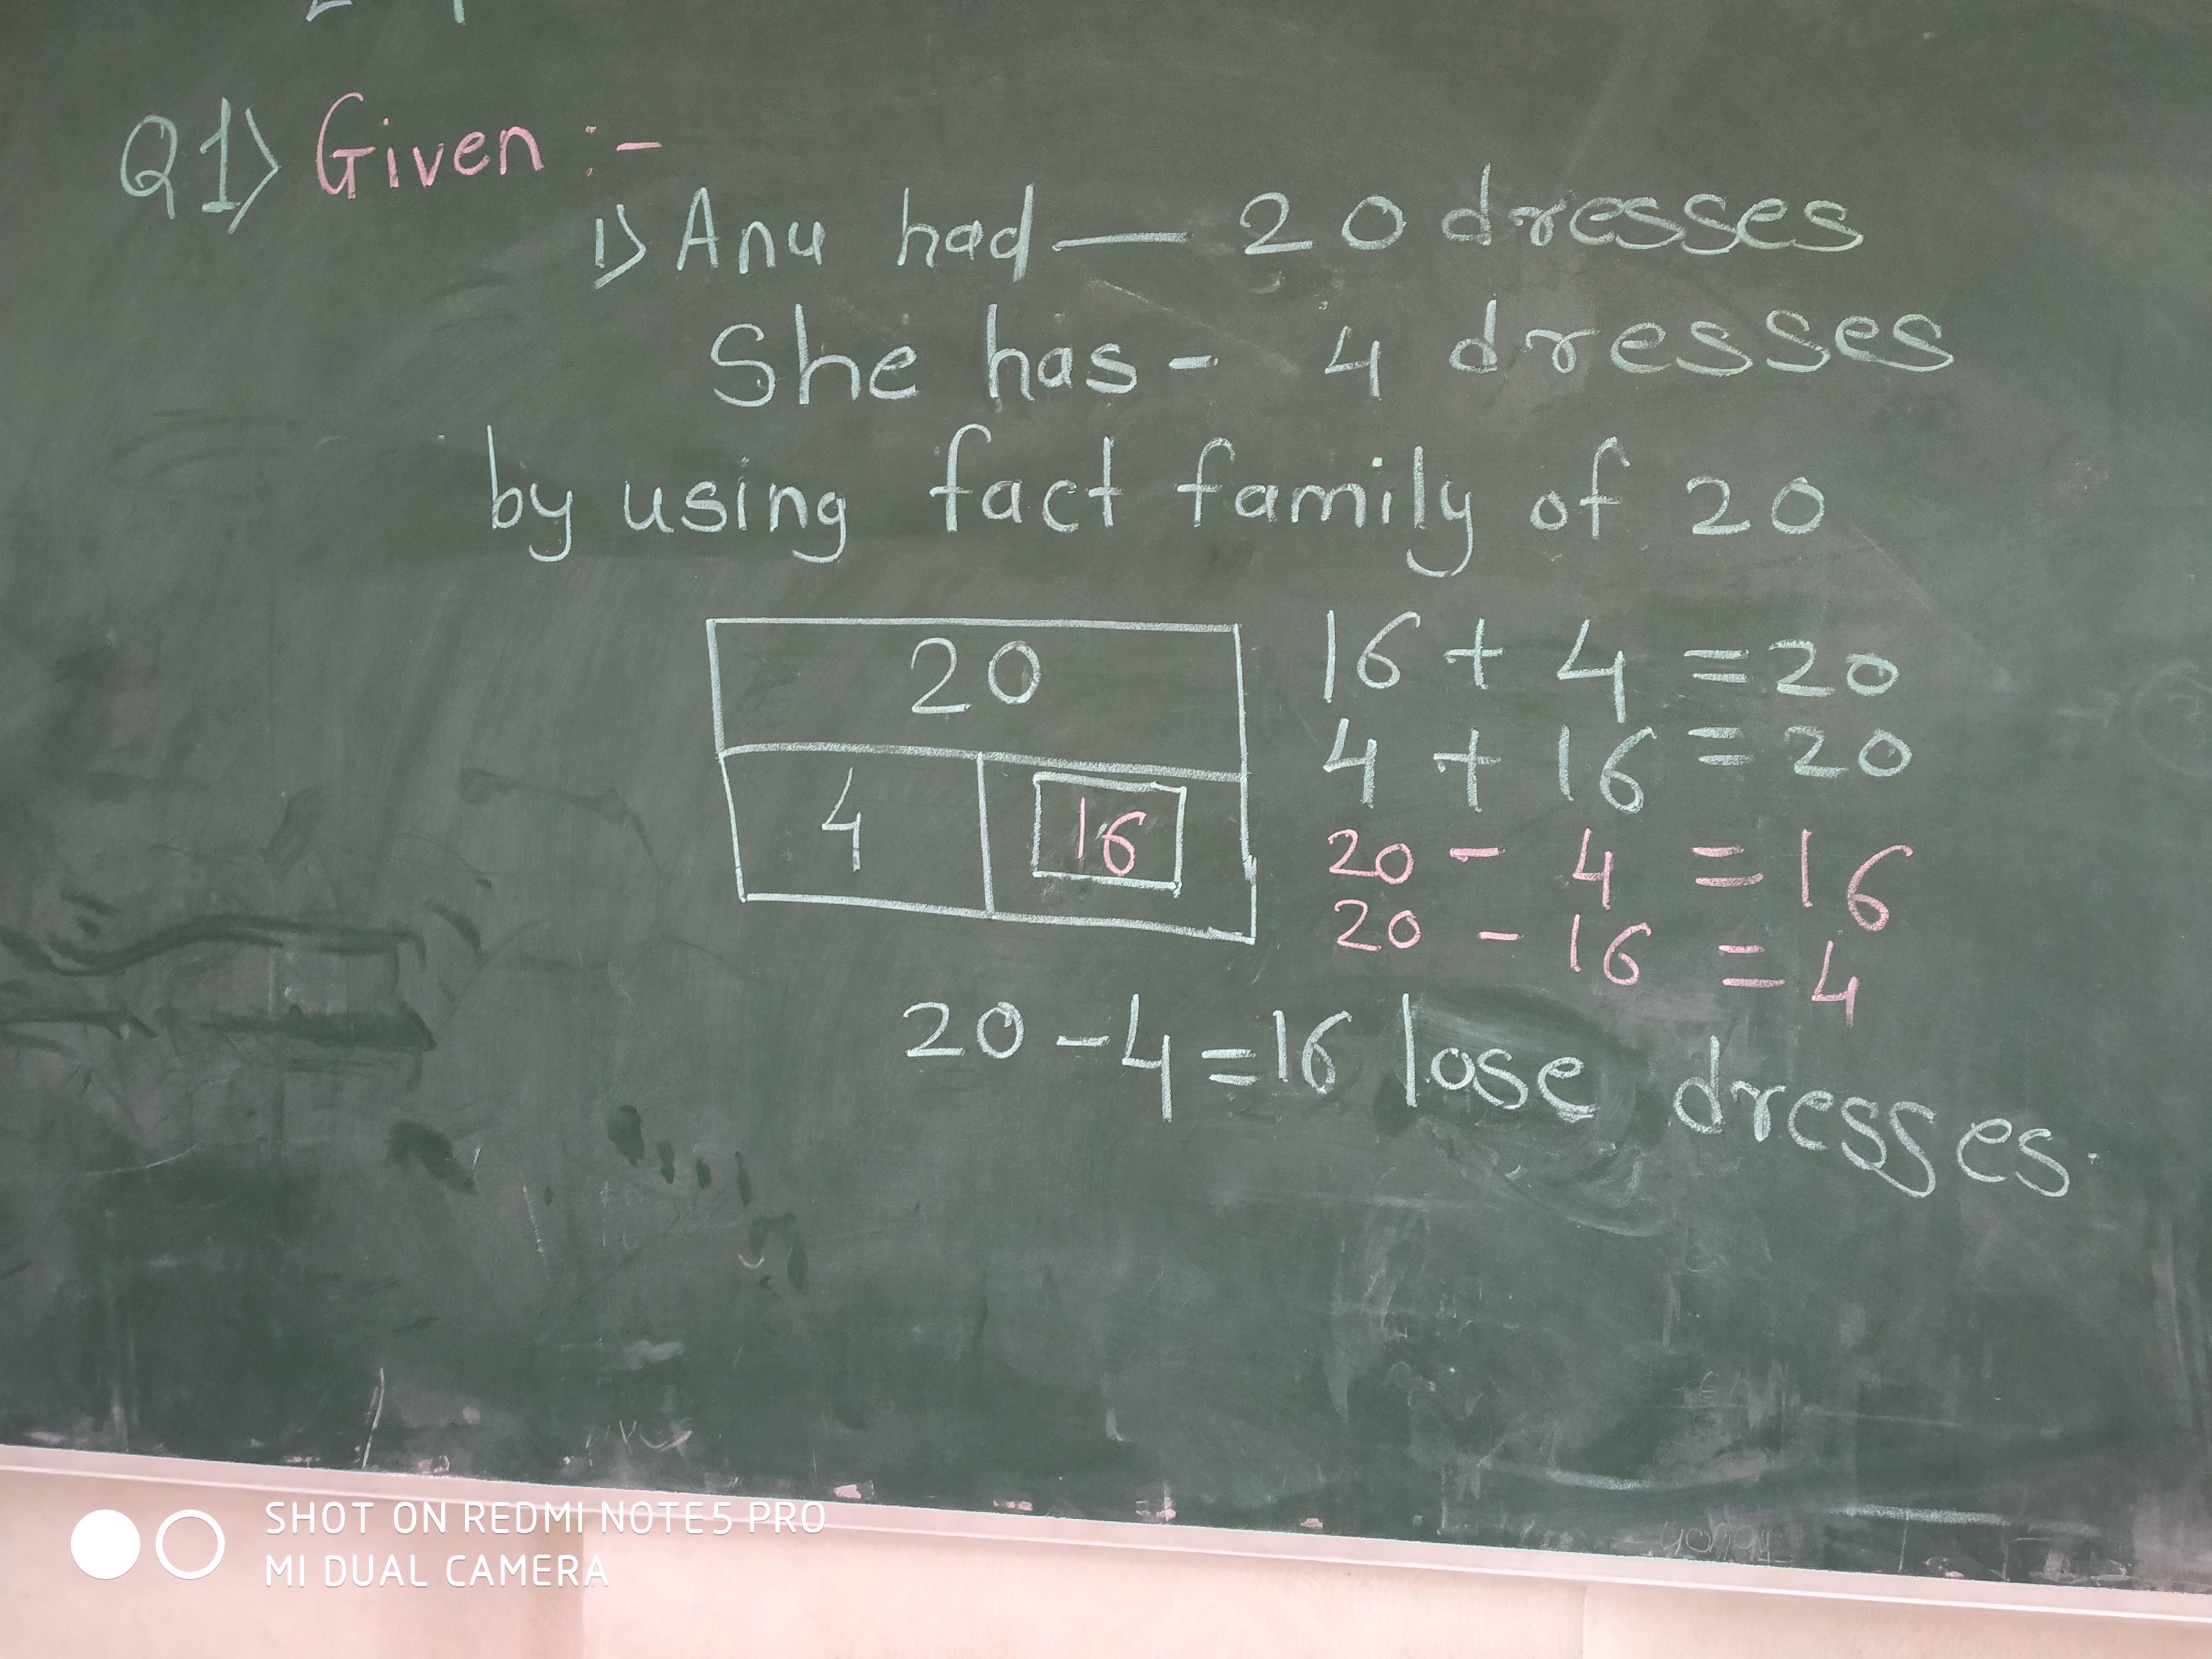 Q1) Given :-
1) Anu had — 20 dresses
She has - 4 dresses
by using fact family of 20
20
4 16
16 + 4 = 20
4 + 16 = 20
20 - 4 = 16
20 - 16 = 4
20 - 4 = 16 lose dresses.
SHOT ON REDMI NOTE5 PRO
MI DUAL CAMERA